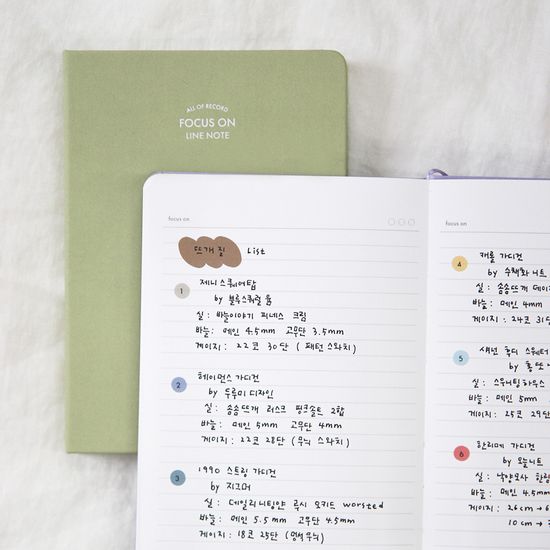 ALL OF RECORD
FOCUS ON
LINE NOTE
focus on
뜨개질 List
1 제니스퀘어탑
by 블루스퀘럴 홈
실: 바늘이야기 피네스 크림
바늘: 메인 4.5mm 고무단 3.5mm
게이지: 22코 30단 (패턴 스와치)
2 헤이먼스 가디건
by 두루미 디자인
실: 송송뜨개 러스크 핑크솔트 2합
바늘: 메인 5mm 고무단 4mm
게이지: 22코 28단 (무늬 스와치)
3 1990 스트링 가디건
by 지크머
실: 데일리니팅얀 루시 오키드 worsted
바늘: 메인 5.5mm 고무단 4.5mm
게이지: 18코 25단 (멍석무늬)
focus on
4 캐롤 가디건
by 수책화니트
실: 송송뜨개 데이
바늘: 메인 4mm
게이지: 24코 31단
5 셔넌 후디 스웨터
by 홍
실: 스위팅하우스
바늘: 메인 5mm
게이지: 25코 29단
6 한리메 가디건
by 오늘니트
실: 낙양모사 한랑
바늘: 메인 4.5mm
26cm → 6
10cm →